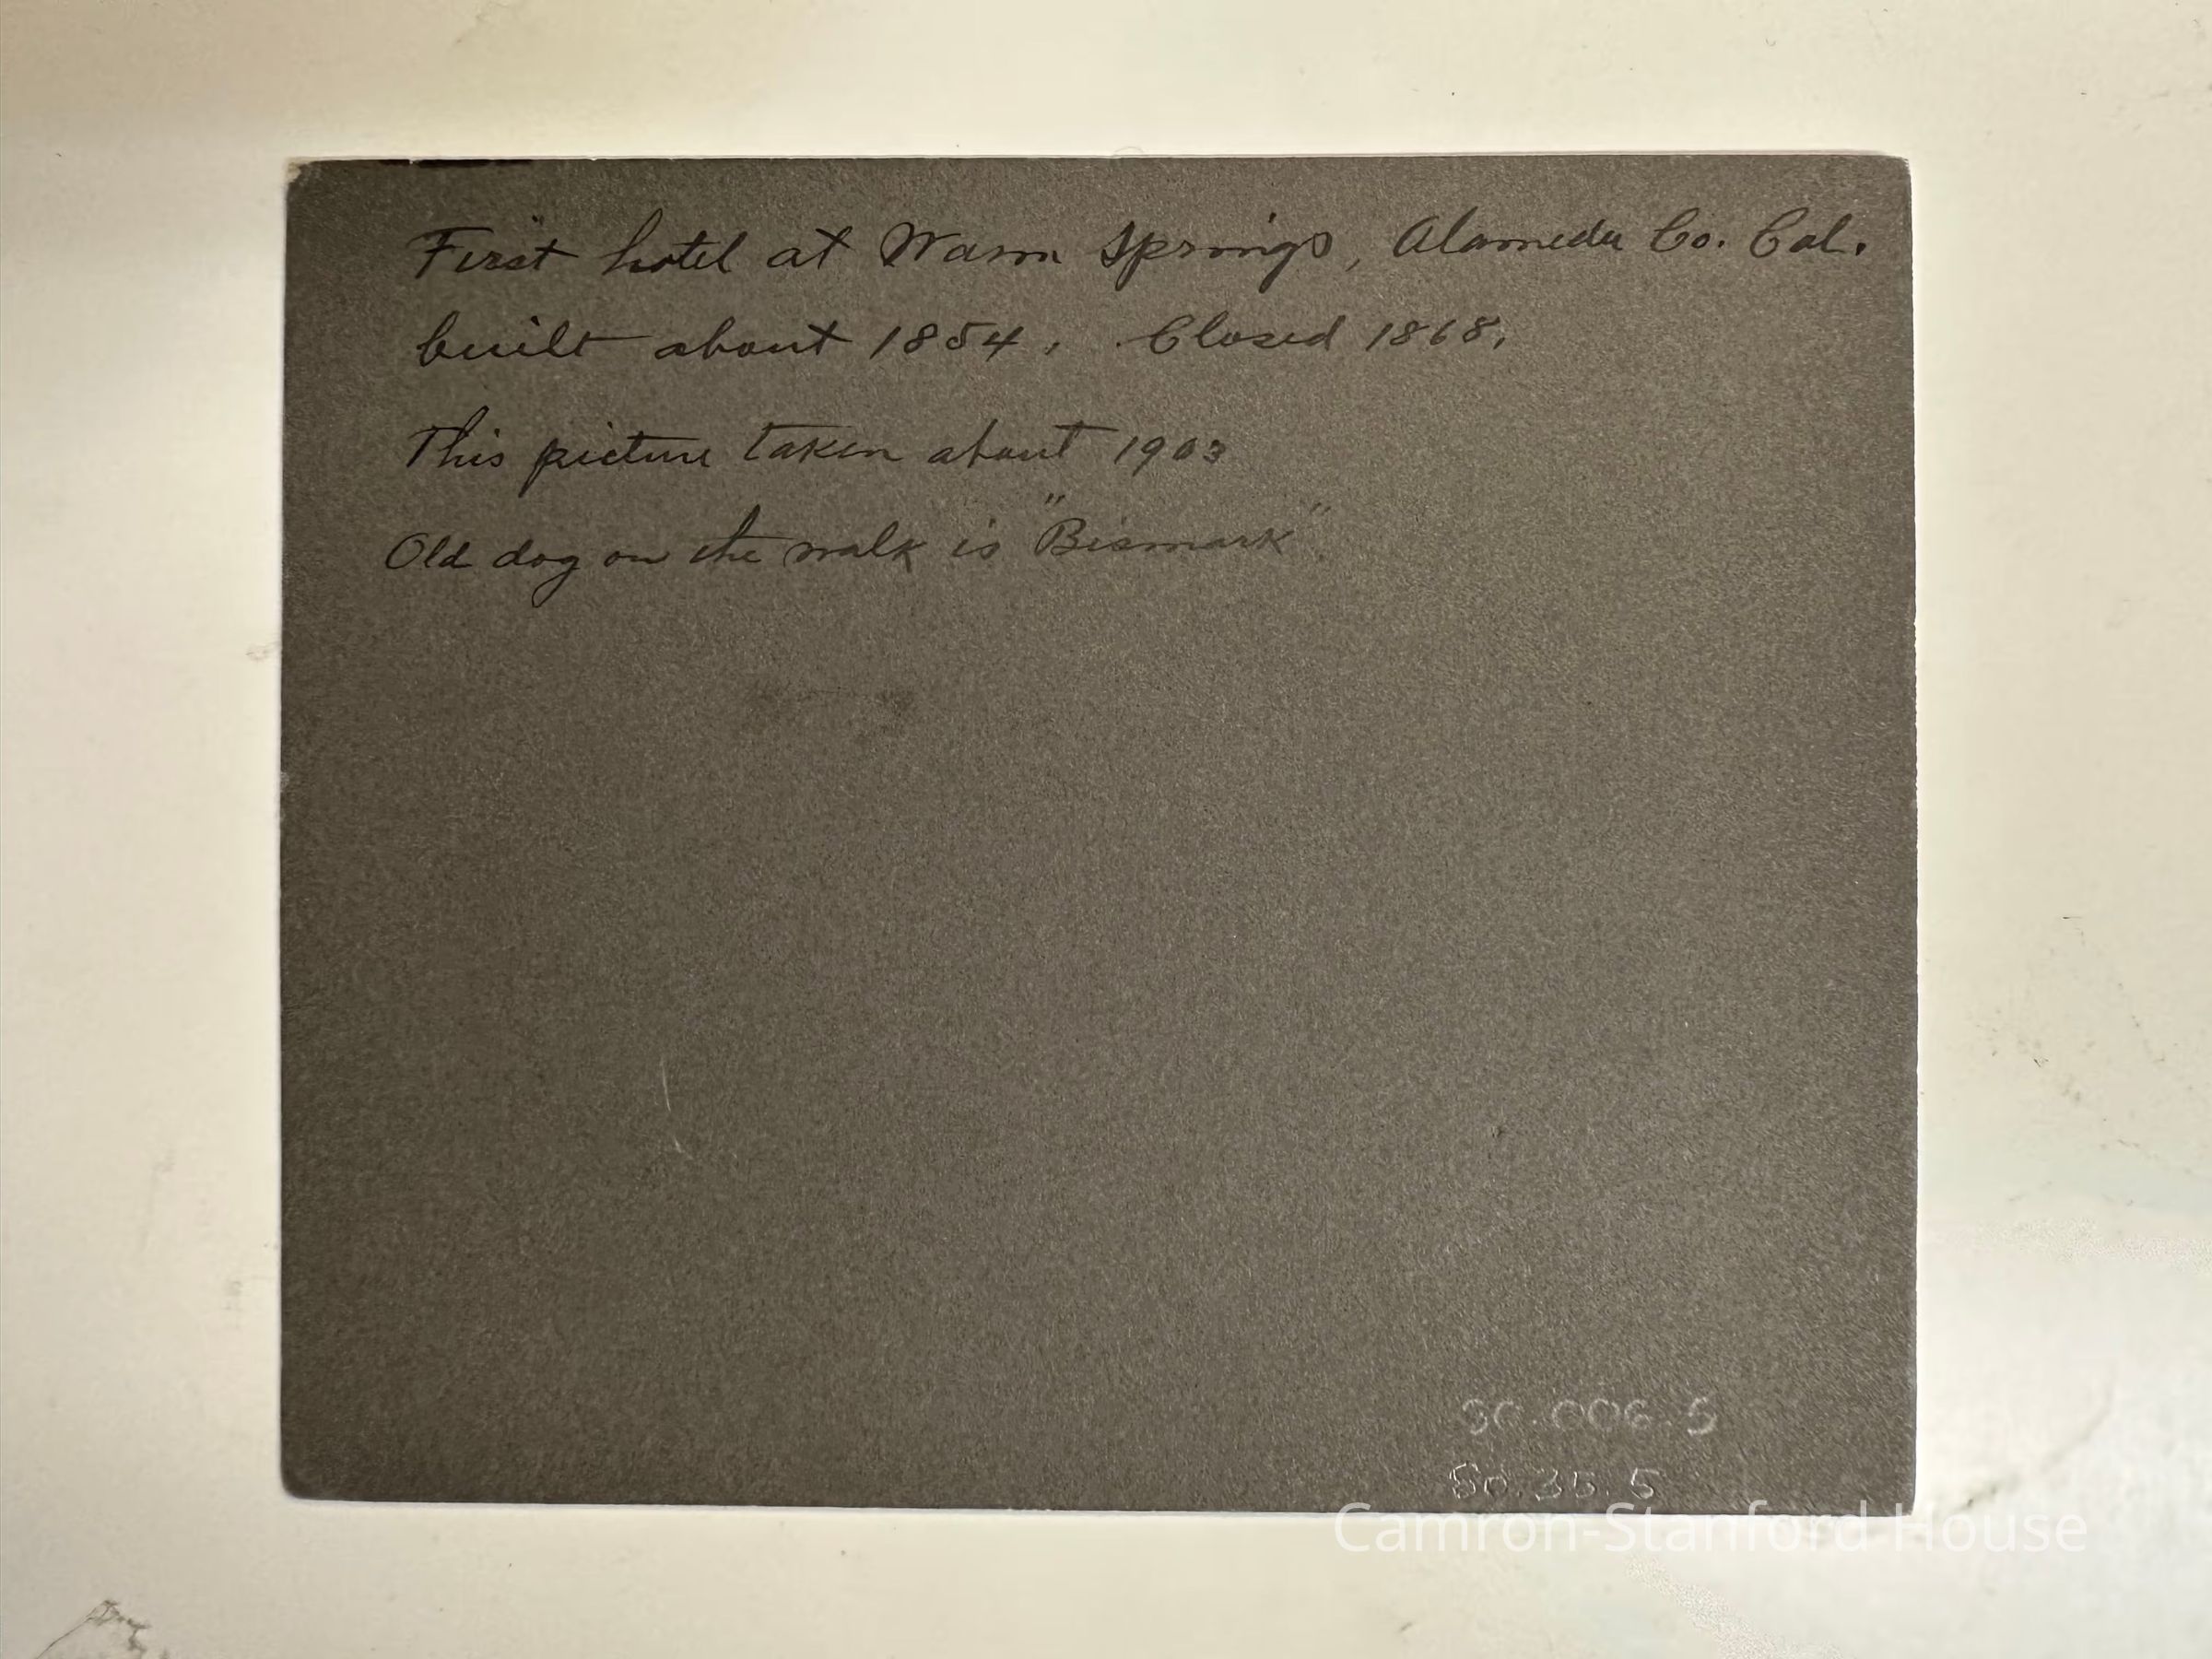 First hotel at Warm Springs, Alameda Co. Cal.
built about 1854. Closed 1868.
This picture taken about 1903
Old dog on the walk is "Bismark".
80.35.5
Camron-Stanford House